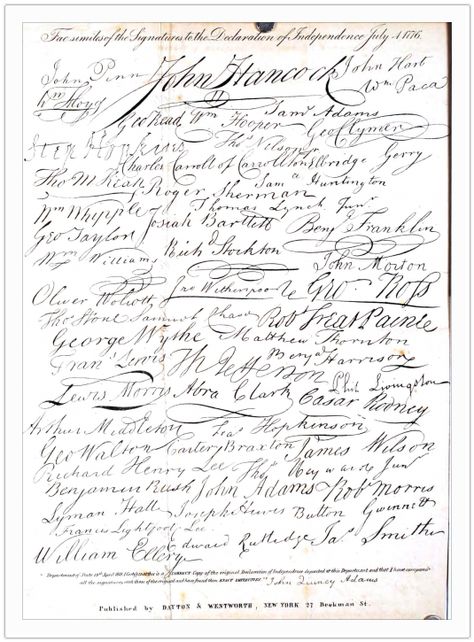 Fac similes of the Signatures to the Declaration of Independence July 4 1776.
John Penn John Hancock John Hart
Wm Floyd Wm Paca
Geo Read Wm Hooper Saml Adams Geo Clymer
Step Hopkins Thos Nelson jr Elbridge Gerry
Charles Carroll of Carrollton
Tho M Kean Roger Sherman Saml Huntington
Wm Whipple Thomas Lynch Junr
Geo Taylor Josiah Bartlett Benj Franklin
Wm Williams Richd Stockton John Morton
Oliver Wolcott Jno Witherspoon Geo Ross
Thos Stone Samuel Chase Robt Treat Paine
George Wythe Matthew Thornton
Frans Lewis Th Jefferson Benj Harrison
Lewis Morris Abra Clark Casar Rodney Phil Livingston
Arthur Middleton Fras Hopkinson
Geo Walton Carter Braxton James Wilson
Richard Henry Lee Thos Heyward Junr
Benjamin Rush John Adams Robt Morris
Lyman Hall Joseph Hewes Button Gwinnett
Francis Lightfoot Lee
William Ellery Edward Rutledge Jas Smith
Department of State 19th April 1819. I Certify, that this is a CORRECT Copy of the original Declaration of Independence deposited at this Department and that I have compared
all the signatures with those of the original and have found them EXACT IMITATIONS. John Quincy Adams
Published by DAYTON & WENTWORTH, NEW YORK 27 Beekman St.